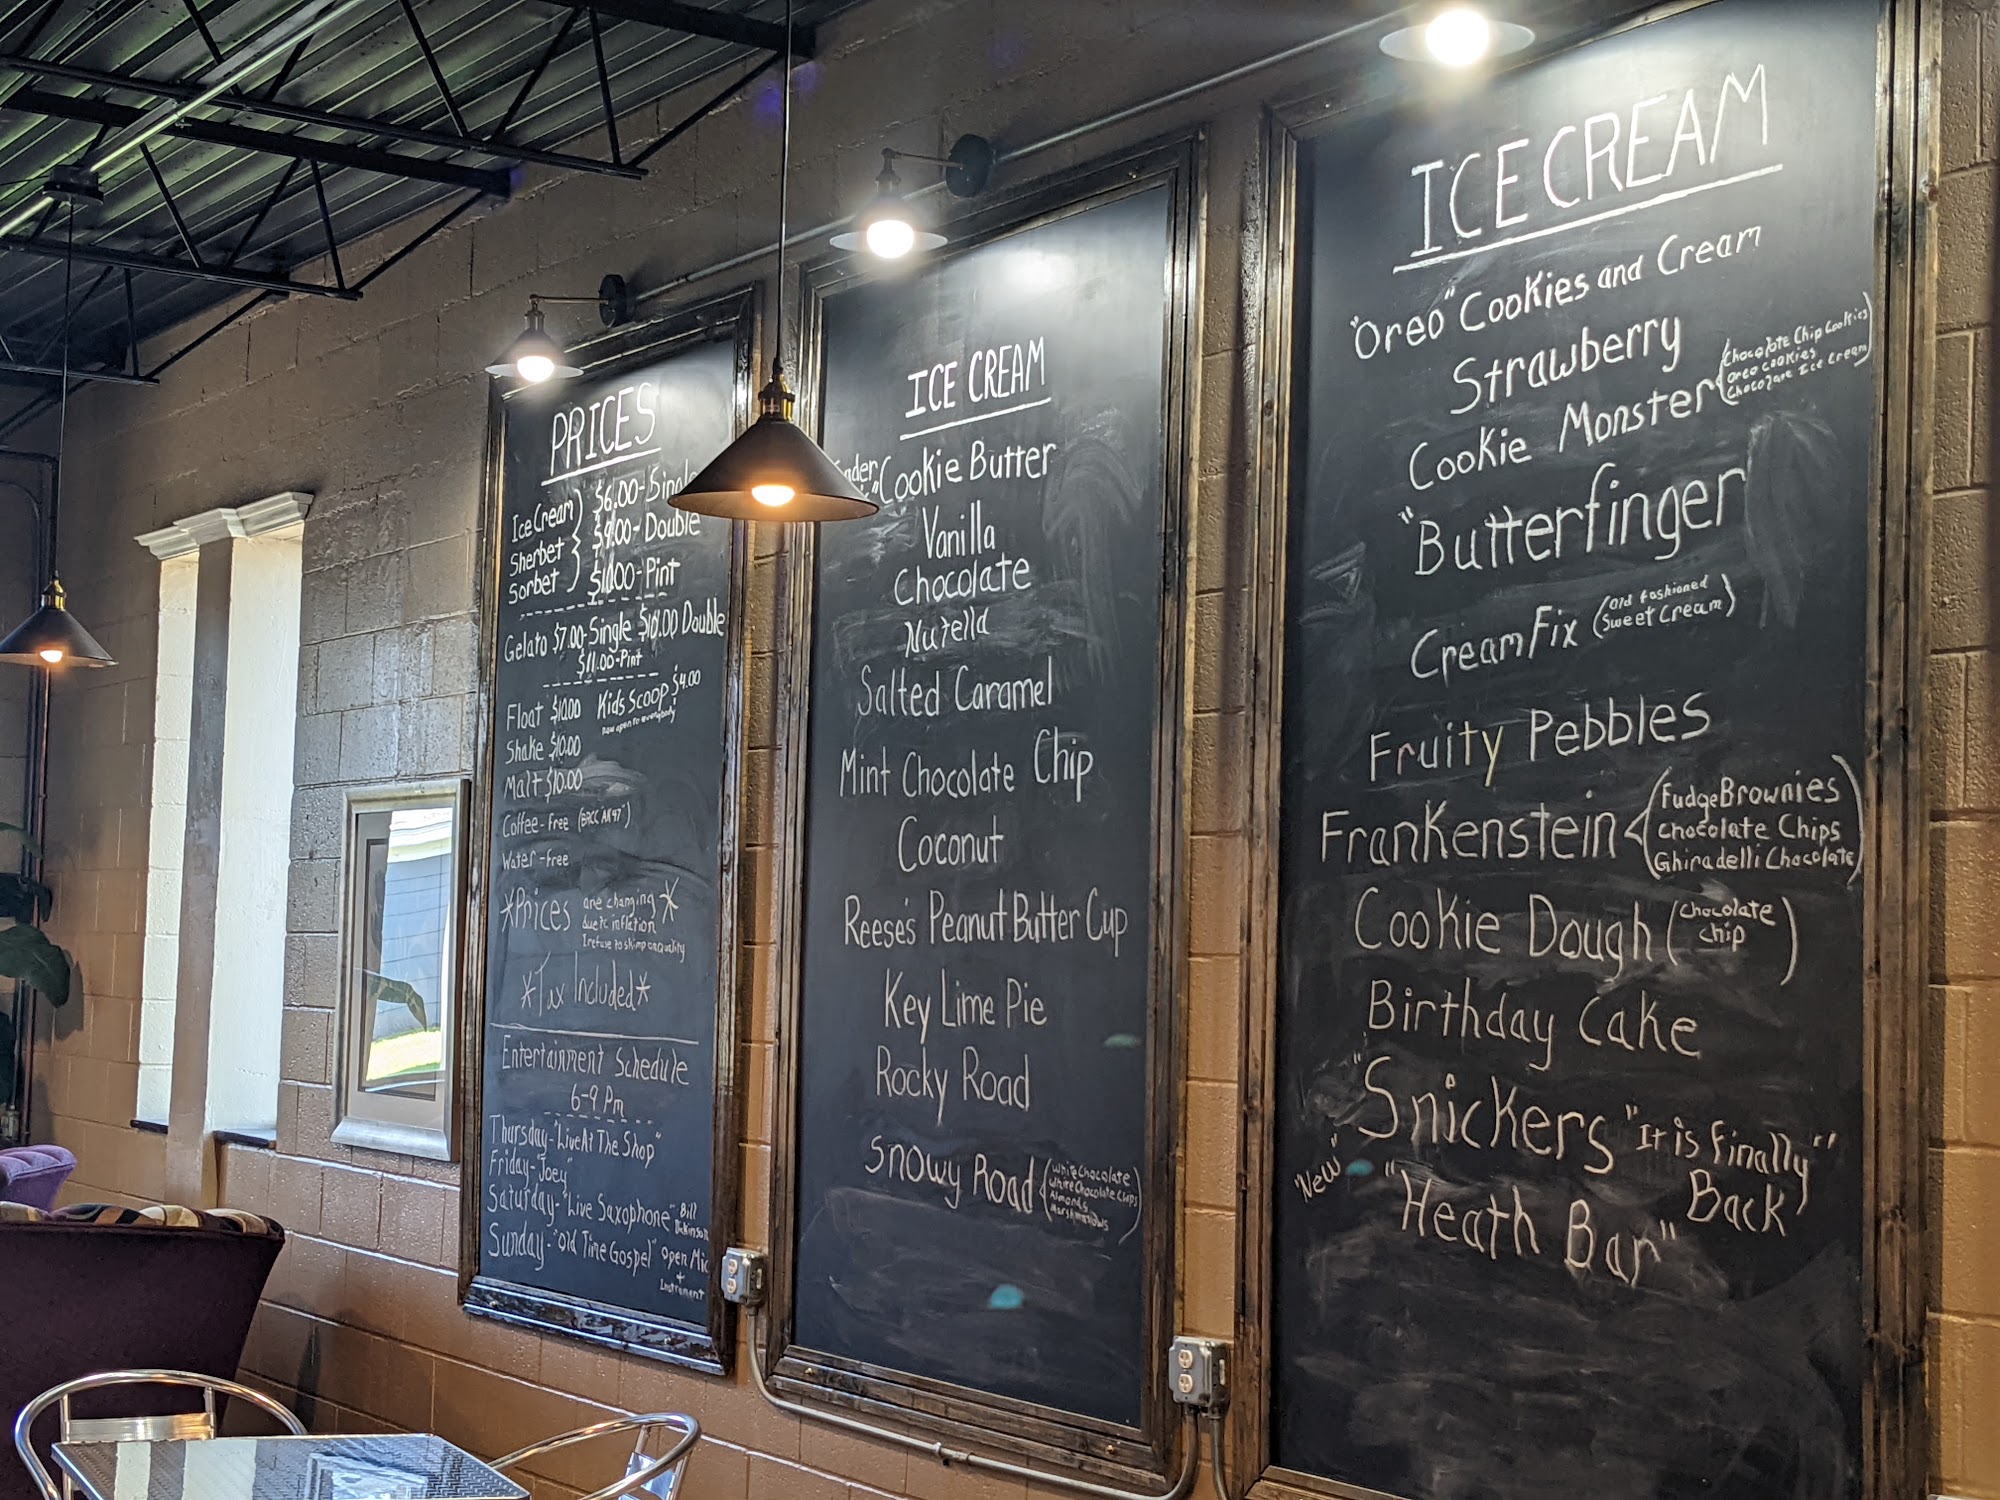 PRICES
Ice Cream
Sherbet
Sorbet
$6.00-Single
$9.00-Double
$10.00-Pint
Gelato $7.00-Single $10.00 Double
$11.00-Pint
Float $10.00
Shake $10.00
Malt $10.00
Kids Scoop $4.00
now open to everybody
Coffee-Free (BRCC AK47")
Water-Free
*Prices are changing *
due to inflation
I refuse to skimp on quality
*Tax Included*
Entertainment Schedule
6-9 Pm
Thursday-"Live At The Shop"
Friday-"Joey"
Saturday-"Live Saxophone" Bill
Sunday-"Old Time Gospel" Open Mic
+
Instrument
ICE CREAM
"Cookie Butter
Vanilla
Chocolate
Nutella
Salted Caramel
Mint Chocolate Chip
Coconut
Reese's Peanut Butter Cup
Key Lime Pie
Rocky Road
Snowy Road
(White Chocolate
White Chocolate Chips
Almonds
Marshmallows)
ICE CREAM
"Oreo" Cookies and Cream
Strawberry
Cookie Monster
(Chocolate Chip Cookies
Oreo Cookies
Chocolate Ice Cream)
"Butterfinger
Cream Fix (Old Fashioned
Sweet Cream)
Fruity Pebbles
Frankenstein
(Fudge Brownies
Chocolate Chips
Ghiradelli Chocolate)
Cookie Dough (Chocolate
Chip)
Birthday Cake
"Snickers" "It is Finally"
Back
"New" "Heath Bar"